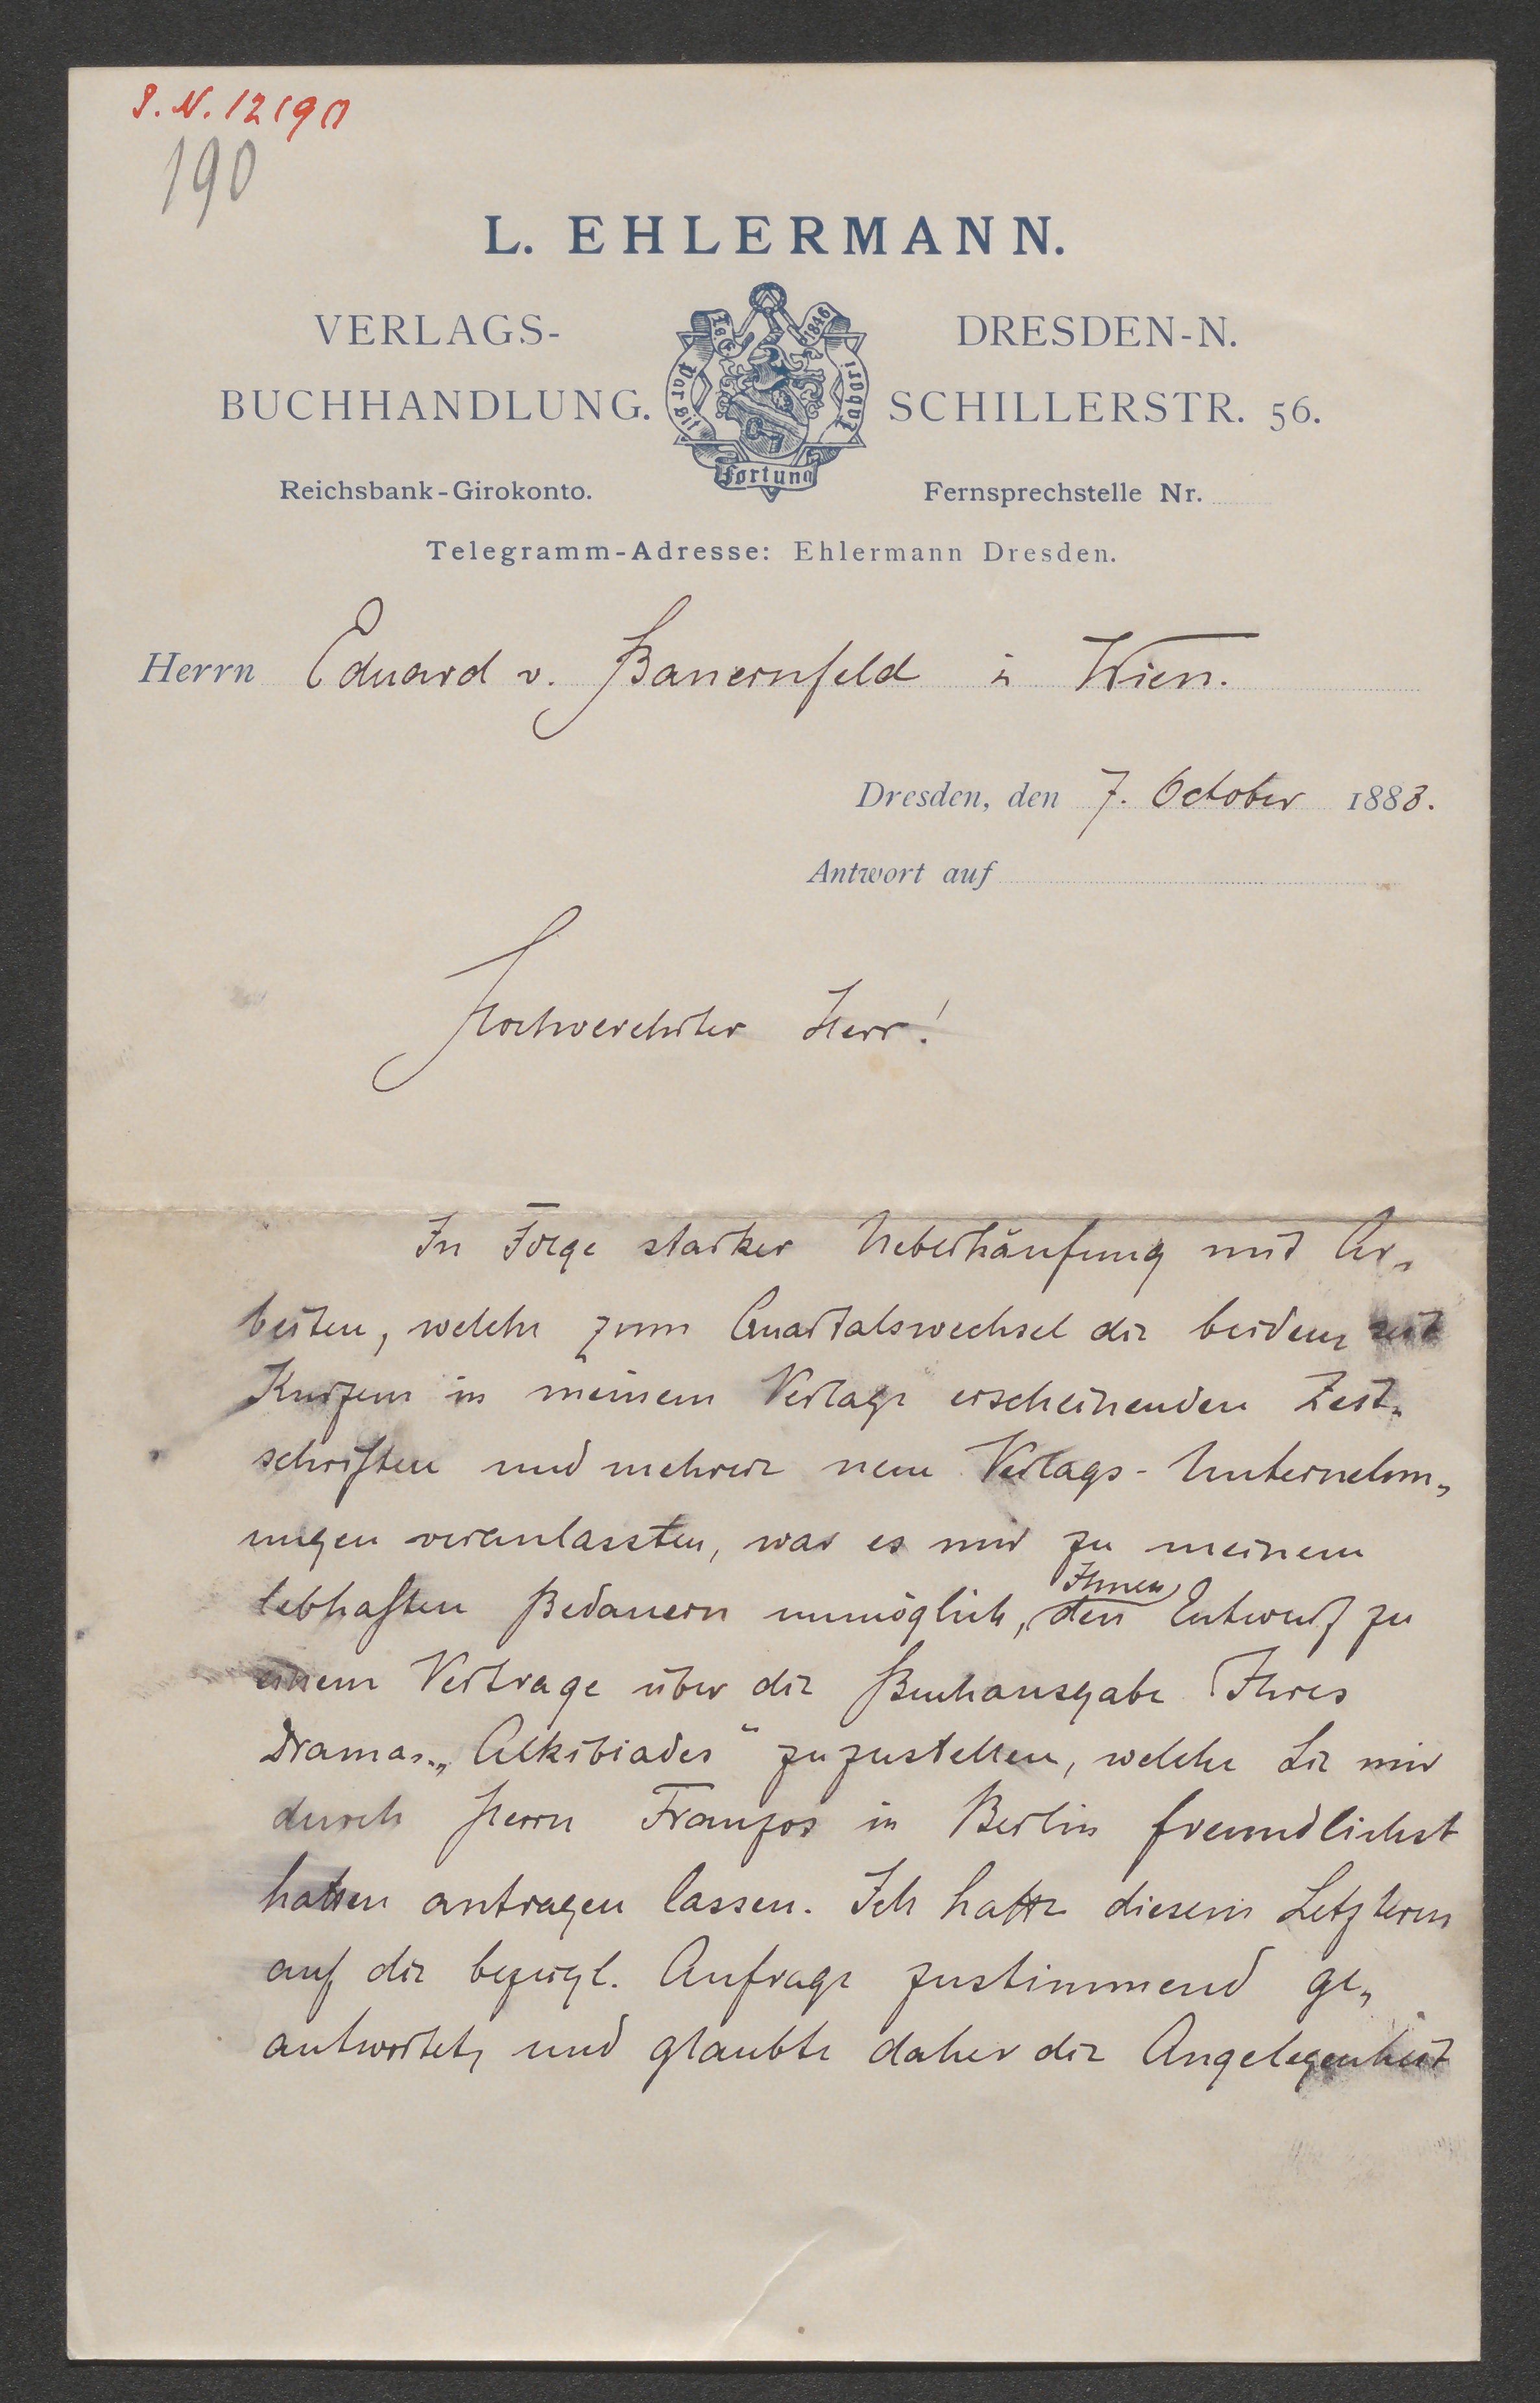 I. N. 12190
190
L. EHLERMANN.
VERLAGS-
BUCHHANDLUNG.
DRESDEN-N.
SCHILLERSTR. 56.
1846
Par sit
Fortuna
Labori
Reichsbank-Girokonto.
Fernsprechstelle Nr.
Telegramm-Adresse: Ehlermann Dresden.
Herrn Eduard v. Bauernfeld in Wien.
Dresden, den 7. October 1888.
Antwort auf
Hochverehrter Herr!
In Folge starker Ueberhäufung mit Ar-
beiten, welche zum Quartalswechsel die beiden seit
Kurzem in meinem Verlage erscheinenden Zeit-
schriften und mehrere neue Verlags-Unternehm-
ungen veranlassten, war es mir zu meinem
lebhaften Bedauern unmöglich, Ihnen den Entwurf zu
einem Vertrage über die Buchausgabe Ihres
Dramas „Alkibiades" zuzustellen, welche Sie mir
durch Herrn Franzos in Berlin freundlichst
hatten antragen lassen. Ich hatte diesem Letztern
auf die bezügl. Anfrage zustimmend ge-
antwortet, und glaubte daher die Angelegenheit